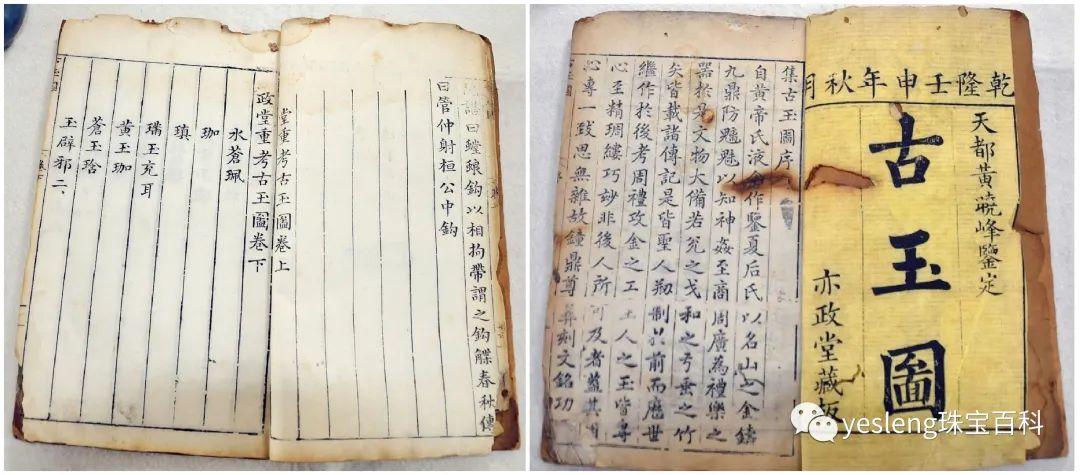 曰螳蜋鉤以相拘帶謂之鉤觿春秋傳
曰管仲射桓公中鉤
堂重考古玉圖卷上
政堂重考古玉圖卷下
水蒼珮
珈
瑱
璊玉充耳
黃玉珈
蒼玉琀
玉辟邪二
乾隆壬申年秋月
天都黃曉峰鑒定
古玉圖
亦政堂藏板
集古玉圖序
自黃帝氏液金作鑒夏后氏以名山之金鑄
九鼎防魑魅以知神姦至商周廣為禮樂之
器於是文物大備若兊之戈和之弓垂之竹
矣皆載諸傳記是皆聖人刱制於前而歷世
繼作於後考周禮攻金之工玉人之玉皆專
心至精琱縷巧妙非後人所可及者蓋其用
心專一致思無雜故鐘鼎尊彝刻文銘功
yesleng珠宝百科